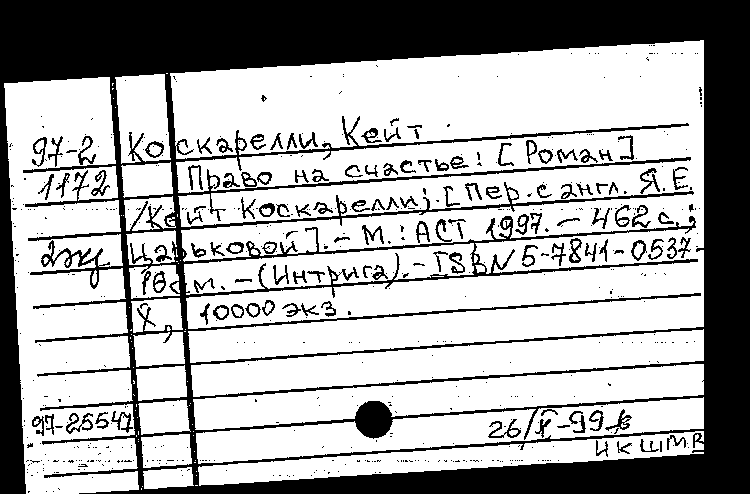 97-2 Коскарелли, Кейт
1172 Право на счастье: [Роман]
/Кейт Коскарелли; [Пер. с англ. Я.Е.
2экз Царьковой]. – М.: АСТ, 1997. – 462 с.;
18см. – (Интрига). – ISBN 5-7841-0537-
X, 10000 экз.
97-25547
26/X-99